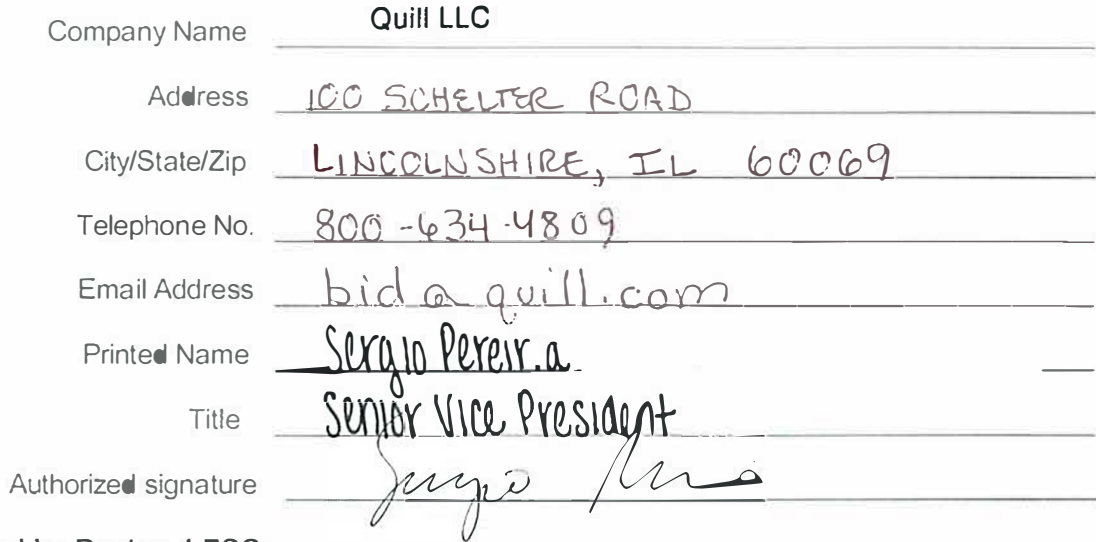 Company Name Quill LLC
Address 100 SCHELTER ROAD
City/State/Zip LINCOLNSHIRE, IL 60069
Telephone No. 800-634-4809
Email Address bid@quill.com
Printed Name Sergio Pereir.a
Title Senior Vice President
Authorized signature